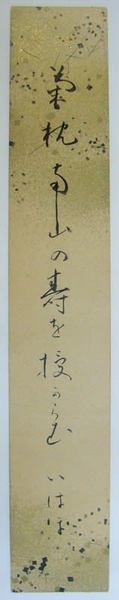 菊枕南山の寿を授からむ　いはほ